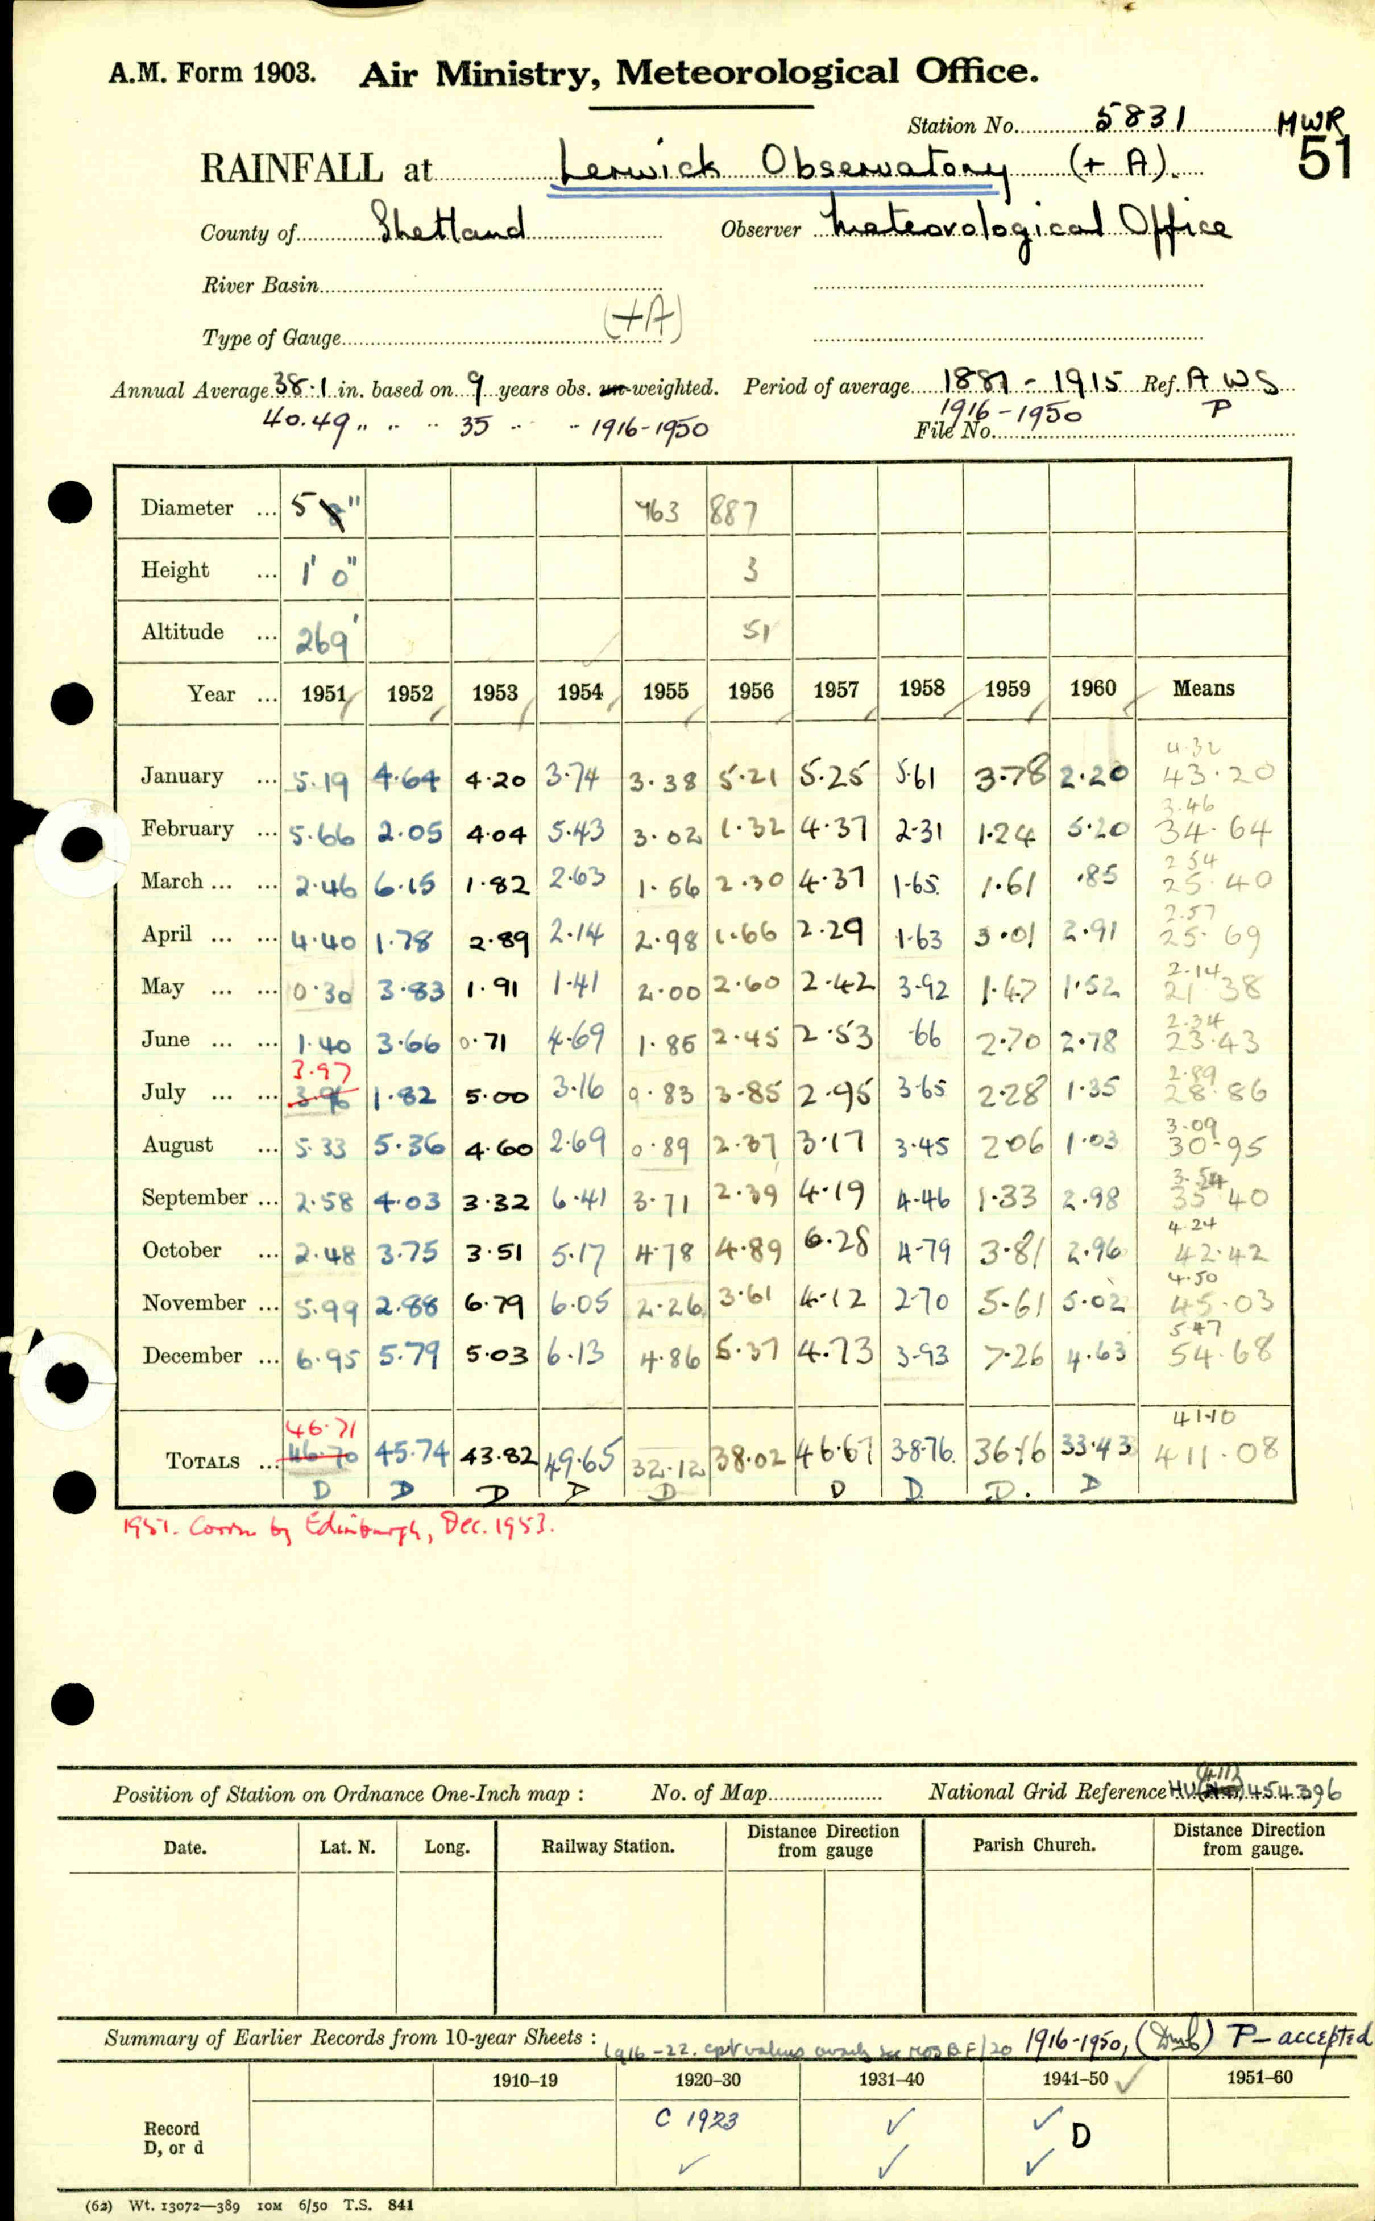 A.M. Form 1903. Air Ministry, Meteorological Office.
Station No. 5831 MWR
RAINFALL at Lerwick Observatory (+ A). 51
County of Shetland Observer Meteorological Office
River Basin
Type of Gauge (+A)
Annual Average 38.1 in. based on 9 years obs. un-weighted. Period of average 1881 - 1915 Ref. A W S
40.49 " " " 35 " " 1916-1950 1916-1950 P
File No.
Diameter ... 5 8" 763 887
Height ... 1' 0" 3
Altitude ... 269' 51
Year ... 1951 1952 1953 1954 1955 1956 1957 1958 1959 1960 Means
4.32
January ... 5.19 4.64 4.20 3.74 3.38 5.21 5.25 5.61 3.78 2.20 43.20
3.46
February ... 5.66 2.05 4.04 5.43 3.02 1.32 4.37 2.31 1.24 5.20 34.64
2.54
March ... ... 2.46 6.15 1.82 2.63 1.56 2.30 4.37 1.65 1.61 .85 25.40
2.57
April ... ... 4.40 1.78 2.89 2.14 2.98 1.66 2.29 1.63 3.01 2.91 25.69
2.14
May ... ... 0.30 3.83 1.91 1.41 2.00 2.60 2.42 3.92 1.47 1.52 21.38
2.34
June ... ... 1.40 3.66 0.71 4.69 1.85 2.45 2.53 .66 2.70 2.78 23.43
3.97 2.89
July ... ... 3.96 1.82 5.00 3.16 0.83 3.85 2.95 3.65 2.28 1.35 28.86
3.09
August ... 5.33 5.36 4.60 2.69 0.89 2.37 3.17 3.45 2.06 1.03 30.95
3.54
September ... 2.58 4.03 3.32 6.41 3.71 2.39 4.19 4.46 1.33 2.98 35.40
4.24
October ... 2.48 3.75 3.51 5.17 4.78 4.89 6.28 4.79 3.81 2.96 42.42
4.50
November ... 5.99 2.88 6.79 6.05 2.26 3.61 4.12 2.70 5.61 5.02 45.03
5.47
December ... 6.95 5.79 5.03 6.13 4.86 5.37 4.73 3.93 7.26 4.63 54.68
46.71 41.10
TOTALS ... 46.70 45.74 43.82 49.65 32.12 38.02 46.67 38.76 36.16 33.43 411.08
D D D D D D D D. D
1951. Corrn by Edinburgh, Dec. 1953.
Position of Station on Ordnance One-Inch map : No. of Map National Grid Reference HU (411) 454396
Date. Lat. N. Long. Railway Station. Distance Direction from gauge Parish Church. Distance Direction from gauge.
Summary of Earlier Records from 10-year Sheets : 1916-22. 1916-1950, P - accepted
1910–19 1920–30 1931–40 1941–50 ✓ 1951–60
Record D, or d C 1923 ✓ ✓ D
✓ ✓ ✓
(62) Wt. 13072—389 10M 6/50 T.S. 841